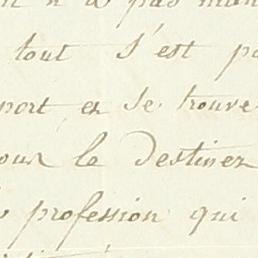 n'a pas
tout s'est
port, en se trouve
pour le destiner
profession qui